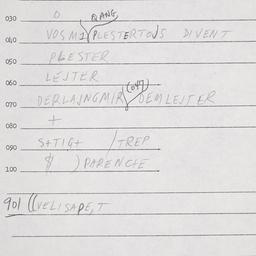 030 O QANG
040 VOSMI PLESTERTOS DIVENT
050 PLESTER
060 LESTER (047)
070 DERLAJNGMIR DEMLEJTER
080 +
090 S+TIG+ /TREP
100 $ ) PARENCIE
901 ((VELISAPE,T